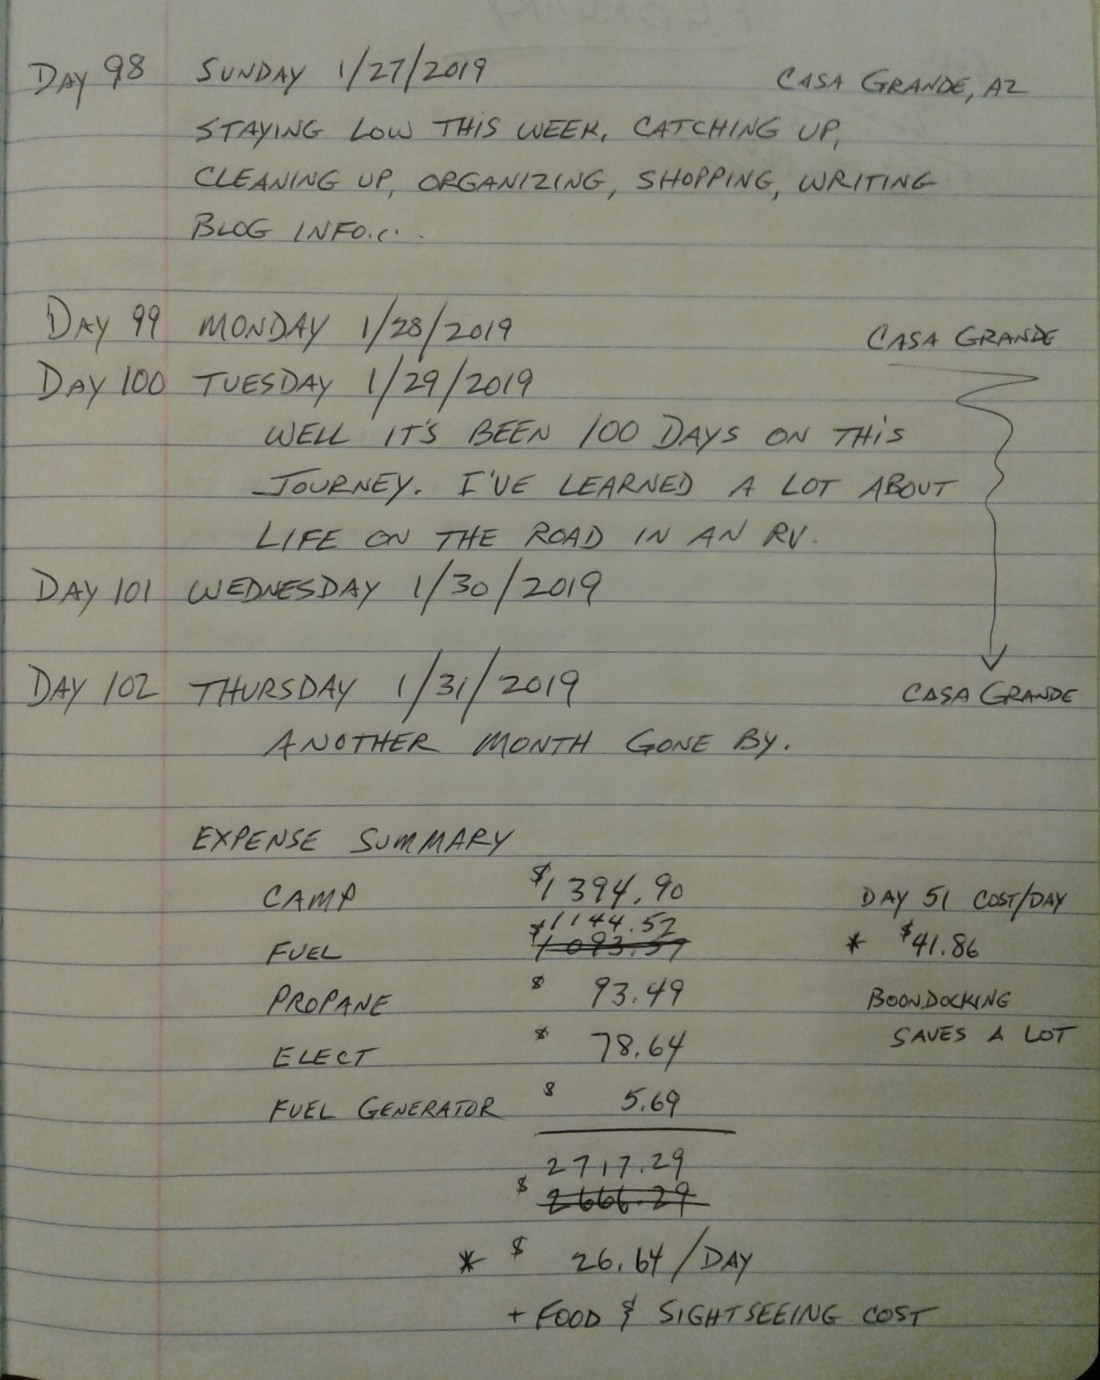 DAY 98 SUNDAY 1/27/2019 CASA GRANDE, AZ
STAYING LOW THIS WEEK. CATCHING UP,
CLEANING UP, ORGANIZING, SHOPPING, WRITING
BLOG INFO...
DAY 99 MONDAY 1/28/2019 CASA GRANDE
DAY 100 TUESDAY 1/29/2019
WELL IT'S BEEN 100 DAYS ON THIS
JOURNEY. I'VE LEARNED A LOT ABOUT
LIFE ON THE ROAD IN AN RV.
DAY 101 WEDNESDAY 1/30/2019
DAY 102 THURSDAY 1/31/2019 CASA GRANDE
ANOTHER MONTH GONE BY.
EXPENSE SUMMARY
CAMP $1394.90 DAY 51 COST/DAY
$1144.57
FUEL 1093.57 * $41.86
PROPANE $ 93.49 BOONDOCKING
SAVES A LOT
ELECT $ 78.64
FUEL GENERATOR $ 5.69
2717.29
$ 2666.29
* $ 26.64/DAY
+ FOOD & SIGHTSEEING COST